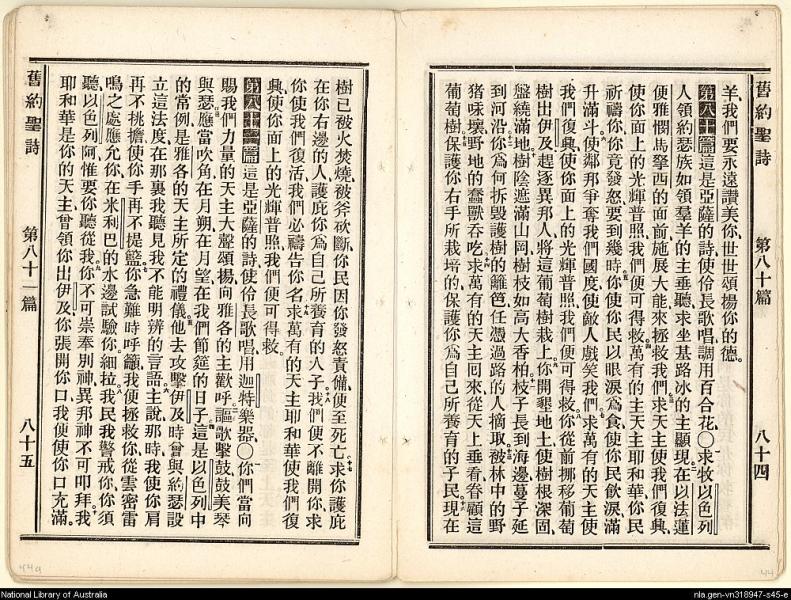 舊約聖詩　第八十篇　八十四
羊我們要永遠讚美你世世頌揚你的德。
第八十篇這是亞薩的詩使伶長歌唱調用百合花〇求牧以色列
人領約瑟族如領羣羊的主垂聽求坐基路冰的主顯現在以法蓮
便雅憫馬拏西的面前施展大能來拯救我們求天主使我們復興
使你面上的光輝普照我們便可得救萬有的主天主耶和華你民
祈禱你你竟發怒要到幾時你使你民以眼淚爲食使你民飲淚滿
升滿斗使鄰邦爭奪我們國度使敵人戲笑我們求萬有的天主使
我們復興使你面上的光輝普照我們便可得救你從前挪移葡萄
樹出伊及趕逐異邦人將這葡萄樹栽上你開墾地土使樹根深固
盤繞滿地樹陰遮滿山岡樹枝如高大香柏枝子長到海邊蔓子延
到河沿你爲何拆毀護樹的籬笆任憑過路的人摘取被林中的野
猪咊壞野地的蠢獸吞吃求萬有的天主回來從天上垂看眷顧這
葡萄樹保護你右手所栽培的保護你爲自己所養育的子民現在
樹已被火焚燒被斧砍斷你民因你發怒責備便至死亡求你護庇
在你右邊的人護庇你爲自己所養育的人子我們便不離開你求
你使我們復活我們必禱告你名求萬有的天主耶和華使我們復
興使你面上的光輝普照我們便可得救。
第八十一篇這是亞薩的詩使伶長歌唱用迦特樂器〇你們當向
賜我們力量的天主大聲頌揚向雅各的主歡呼謳歌擊鼓鼓美琴
與瑟應當吹角在月朔在月望在我們節筵的日子這是以色列中
的常例是雅各的天主所定的禮儀他去攻擊伊及時曾與約瑟設
立這法度在那裏我聽見我不能明辨的言語主說那時我使你肩
再不挑擔使你手再不提籃你急難時呼籲我便拯救你從雲密雷
鳴之處應允你在米利巴的水邊試驗你細拉我民我警戒你你須
聽以色列阿惟要你聽從我你不可崇奉別神異邦神不可叩拜我
耶和華是你的天主曾領你出伊及你張開你口我便使你口充滿。
舊約聖詩　第八十一篇　八十五
44a
44
National Library of Australia
nla.gen-vn318947-s45-e